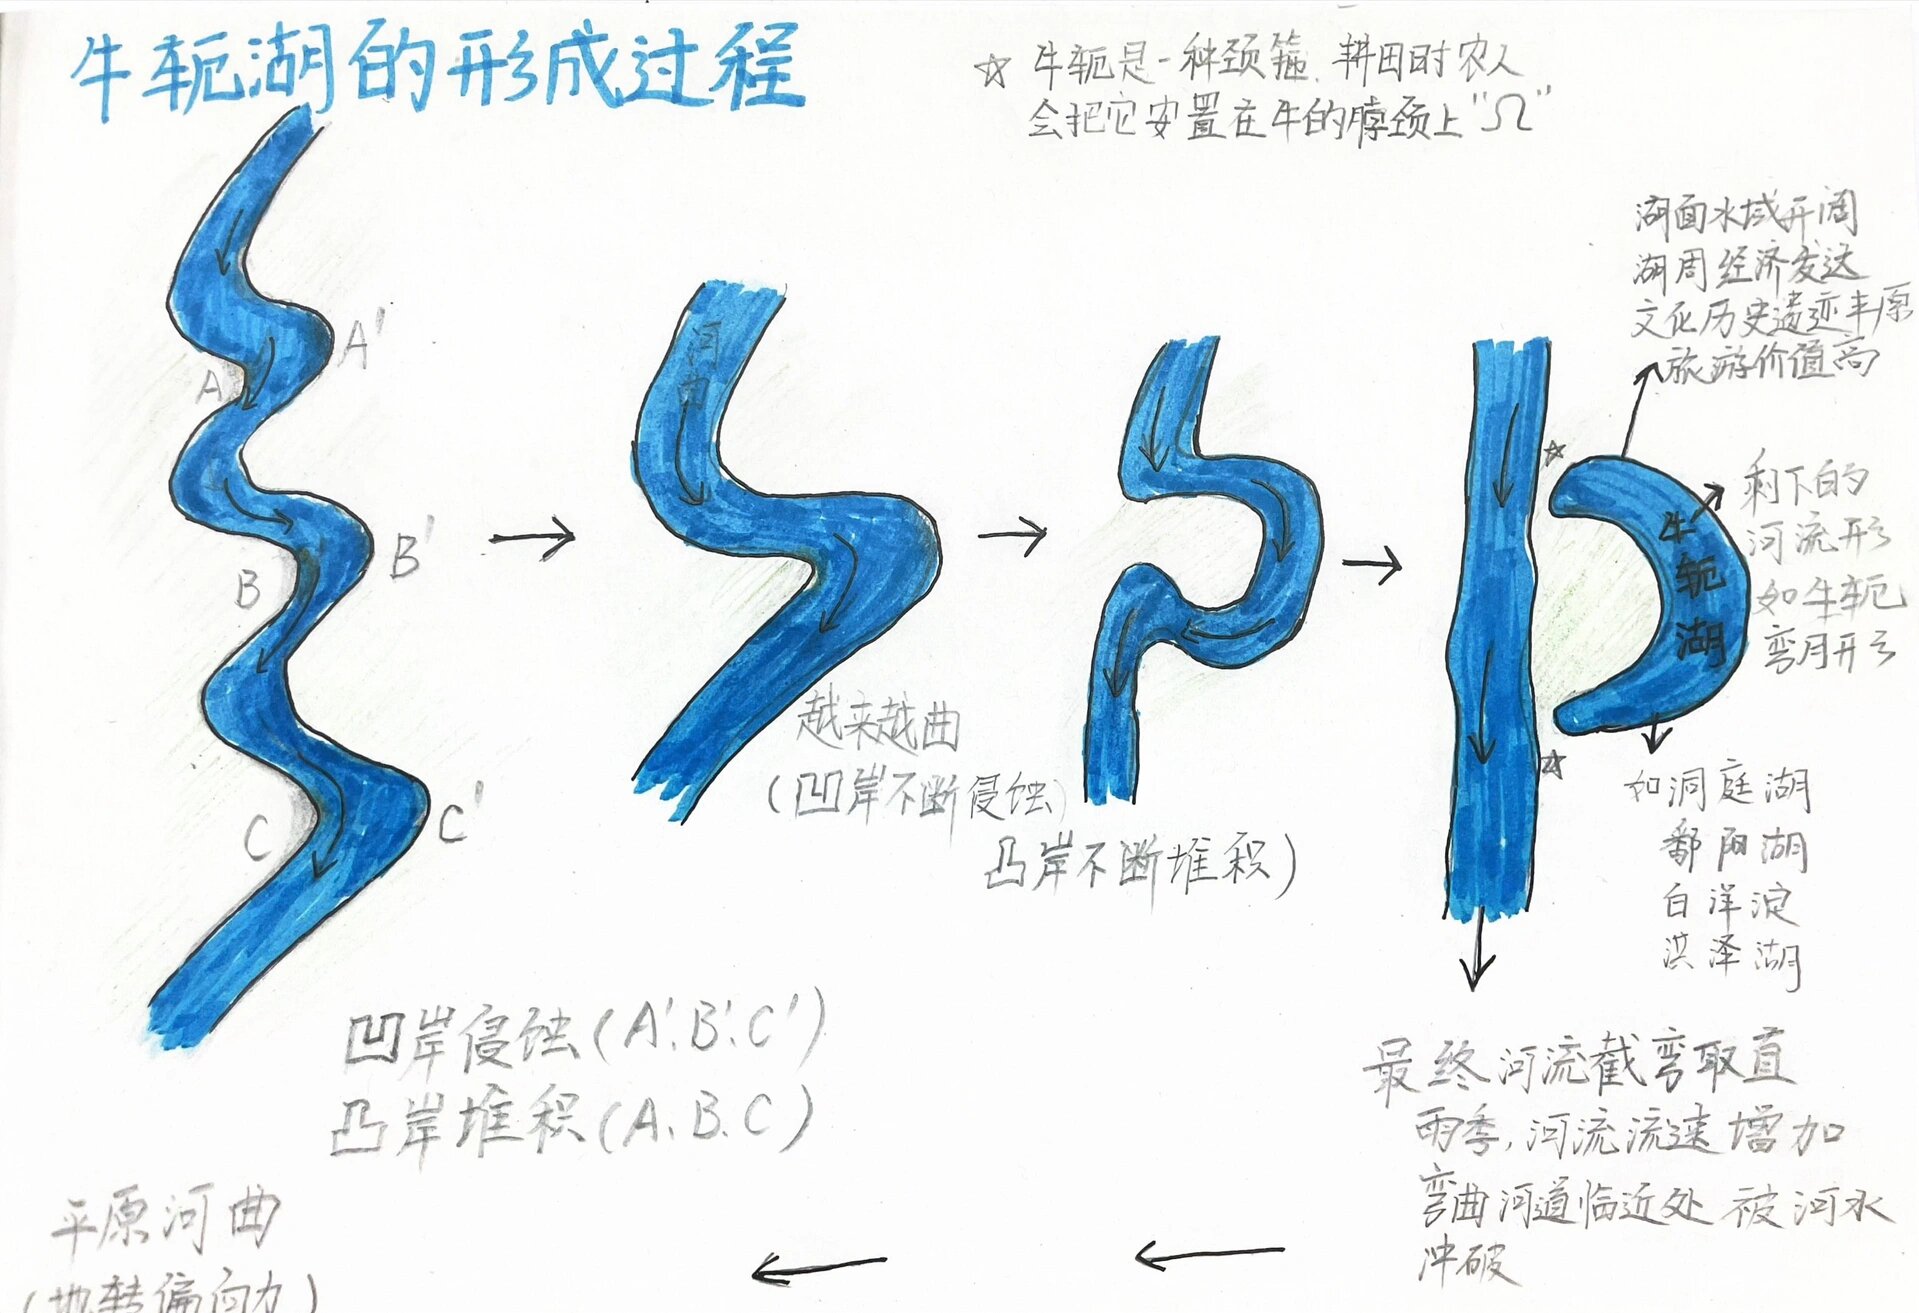 牛轭湖的形成过程
☆ 牛轭是一种颈箍、耕田时农人
会把它安置在牛的脖颈上"Ω"
湖面水域开阔
湖周经济发达
文化历史遗迹丰厚
旅游价值高
A'
A
B'
B
C'
C
河曲
越来越曲
(凹岸不断侵蚀)
凸岸不断堆积)
☆
☆
牛轭湖
剩下的
河流形
如牛轭
弯月形
如洞庭湖
鄱阳湖
白洋淀
洪泽湖
凹岸侵蚀(A'、B'、C')
凸岸堆积(A、B、C)
最终河流截弯取直
雨季,河流流速增加
弯曲河道临近处被河水
冲破
平原河曲
(地转偏向力)